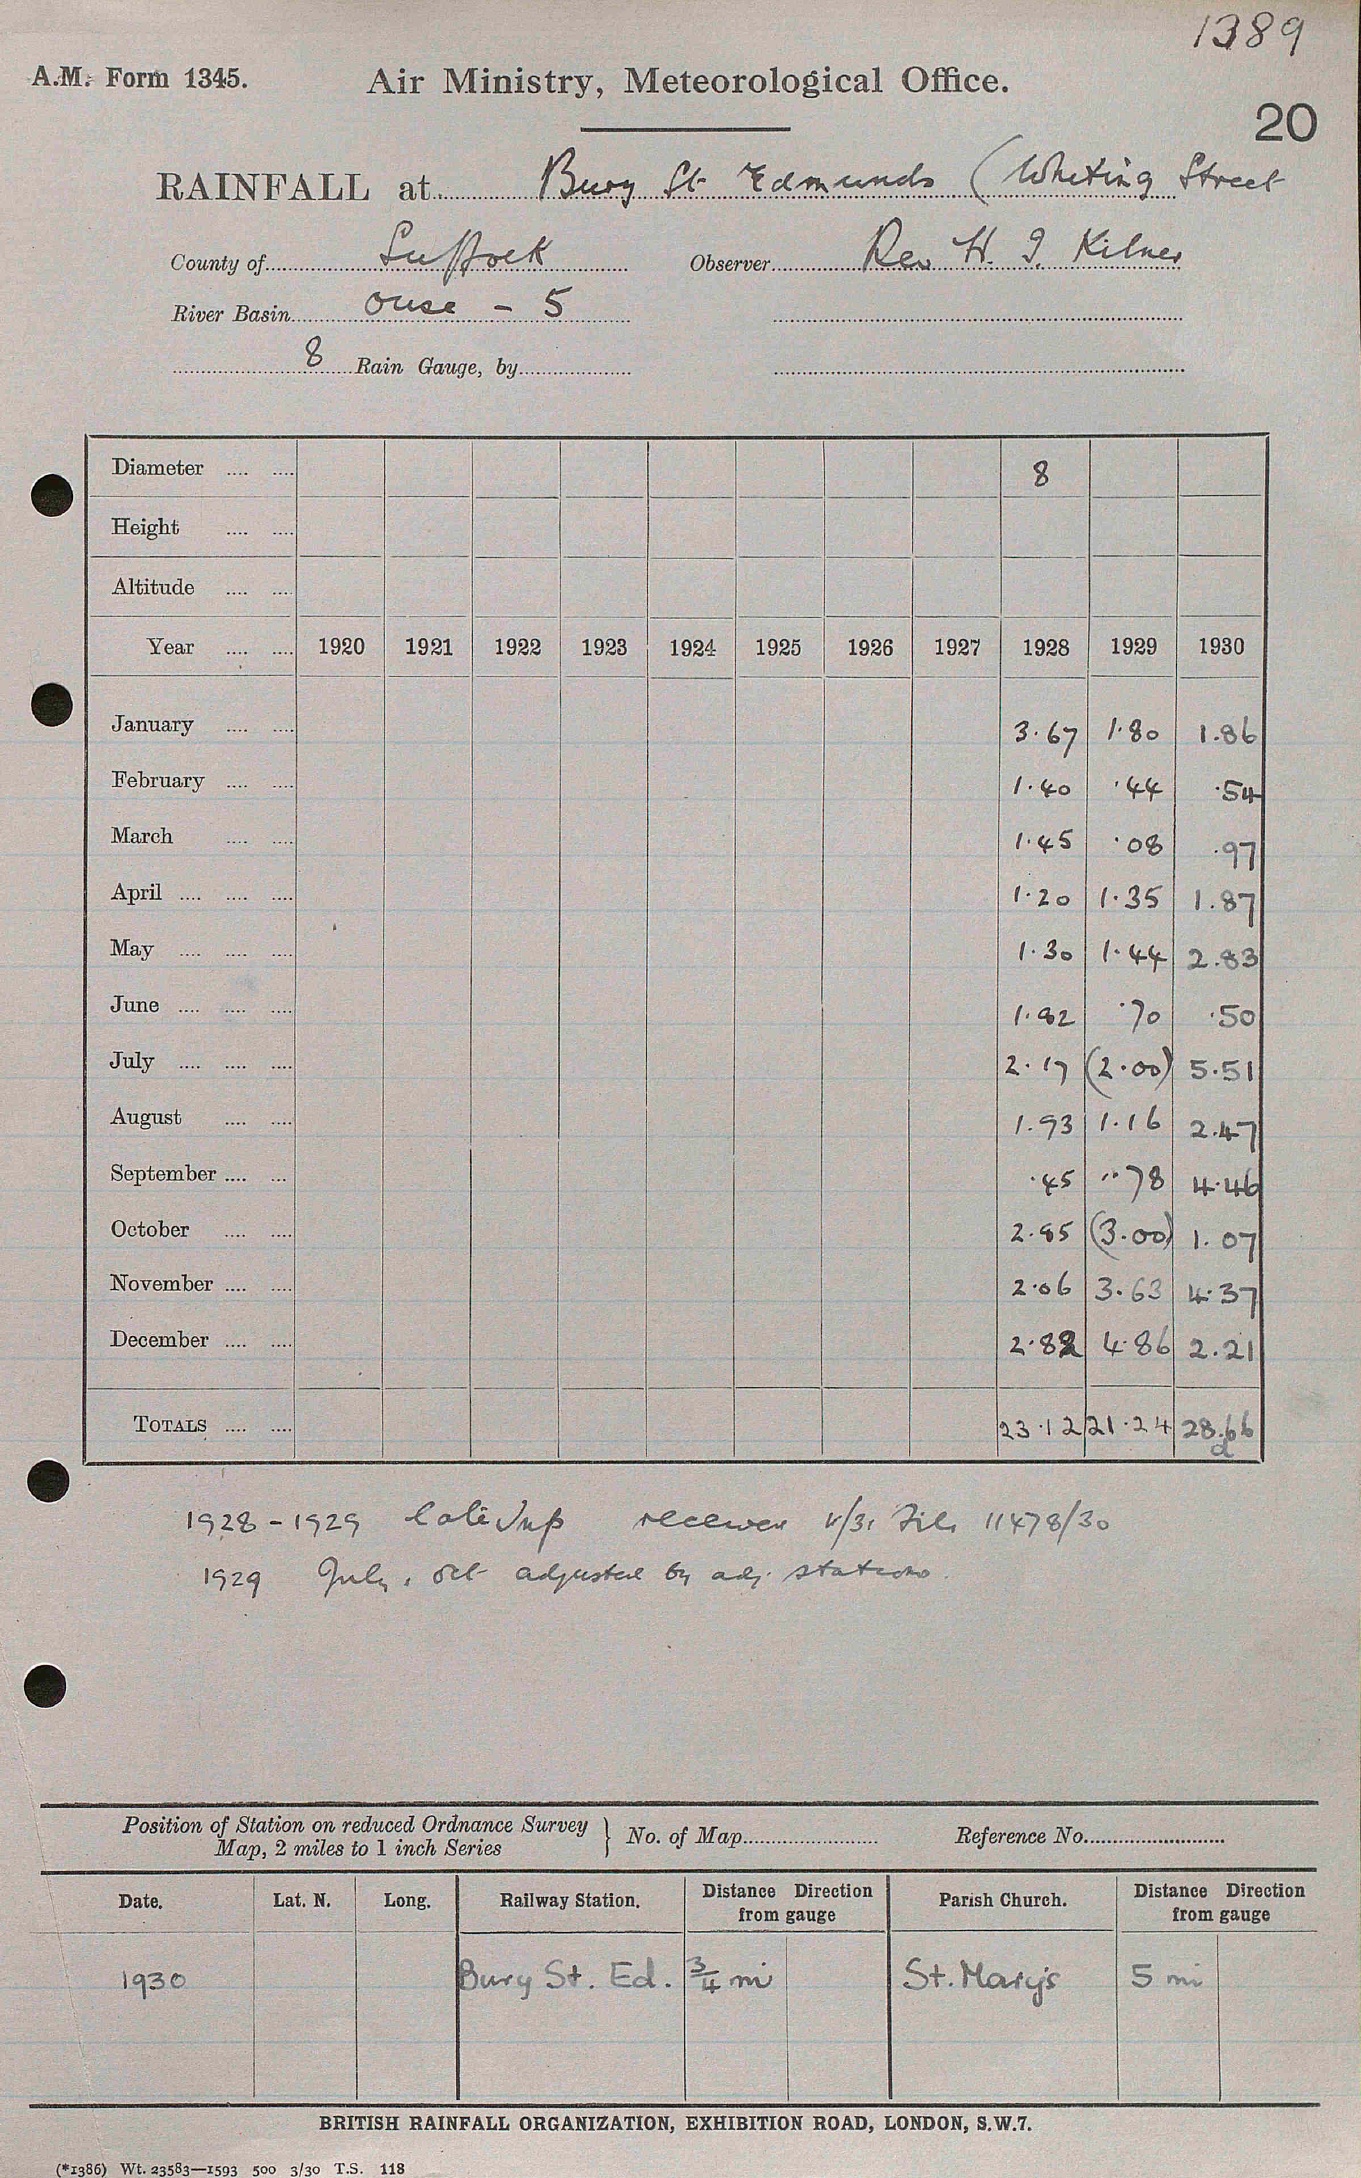 1389
A.M. Form 1345. Air Ministry, Meteorological Office.
20
RAINFALL at Bury St Edmunds (Whiting Street
County of Suffolk Observer Rev H. J. Kilner
River Basin Ouse - 5
8 Rain Gauge, by
Diameter 8
Height
Altitude
Year 1920 1921 1922 1923 1924 1925 1926 1927 1928 1929 1930
January 3.67 1.80 1.86
February 1.40 .44 .54
March 1.45 .08 .97
April 1.20 1.35 1.87
May 1.30 1.44 2.83
June 1.82 .70 .50
July 2.17 (2.00) 5.51
August 1.93 1.16 2.47
September .45 .78 4.46
October 2.85 (3.00) 1.07
November 2.06 3.63 4.37
December 2.82 4.86 2.21
TOTALS 23.12 21.24 28.66
d
1928 - 1929 late received File 11478/30
1929 July, Oct adjusted by adj. stations.
Position of Station on reduced Ordnance Survey
Map, 2 miles to 1 inch Series } No. of Map Reference No.
Date. Lat. N. Long. Railway Station. Distance Direction from gauge Parish Church. Distance Direction from gauge
1930 Bury St. Ed. 3/4 mi St. Mary's 5 mi
BRITISH RAINFALL ORGANIZATION, EXHIBITION ROAD, LONDON, S.W.7.
(*1386) Wt. 23583—1593 500 3/30 T.S. 118